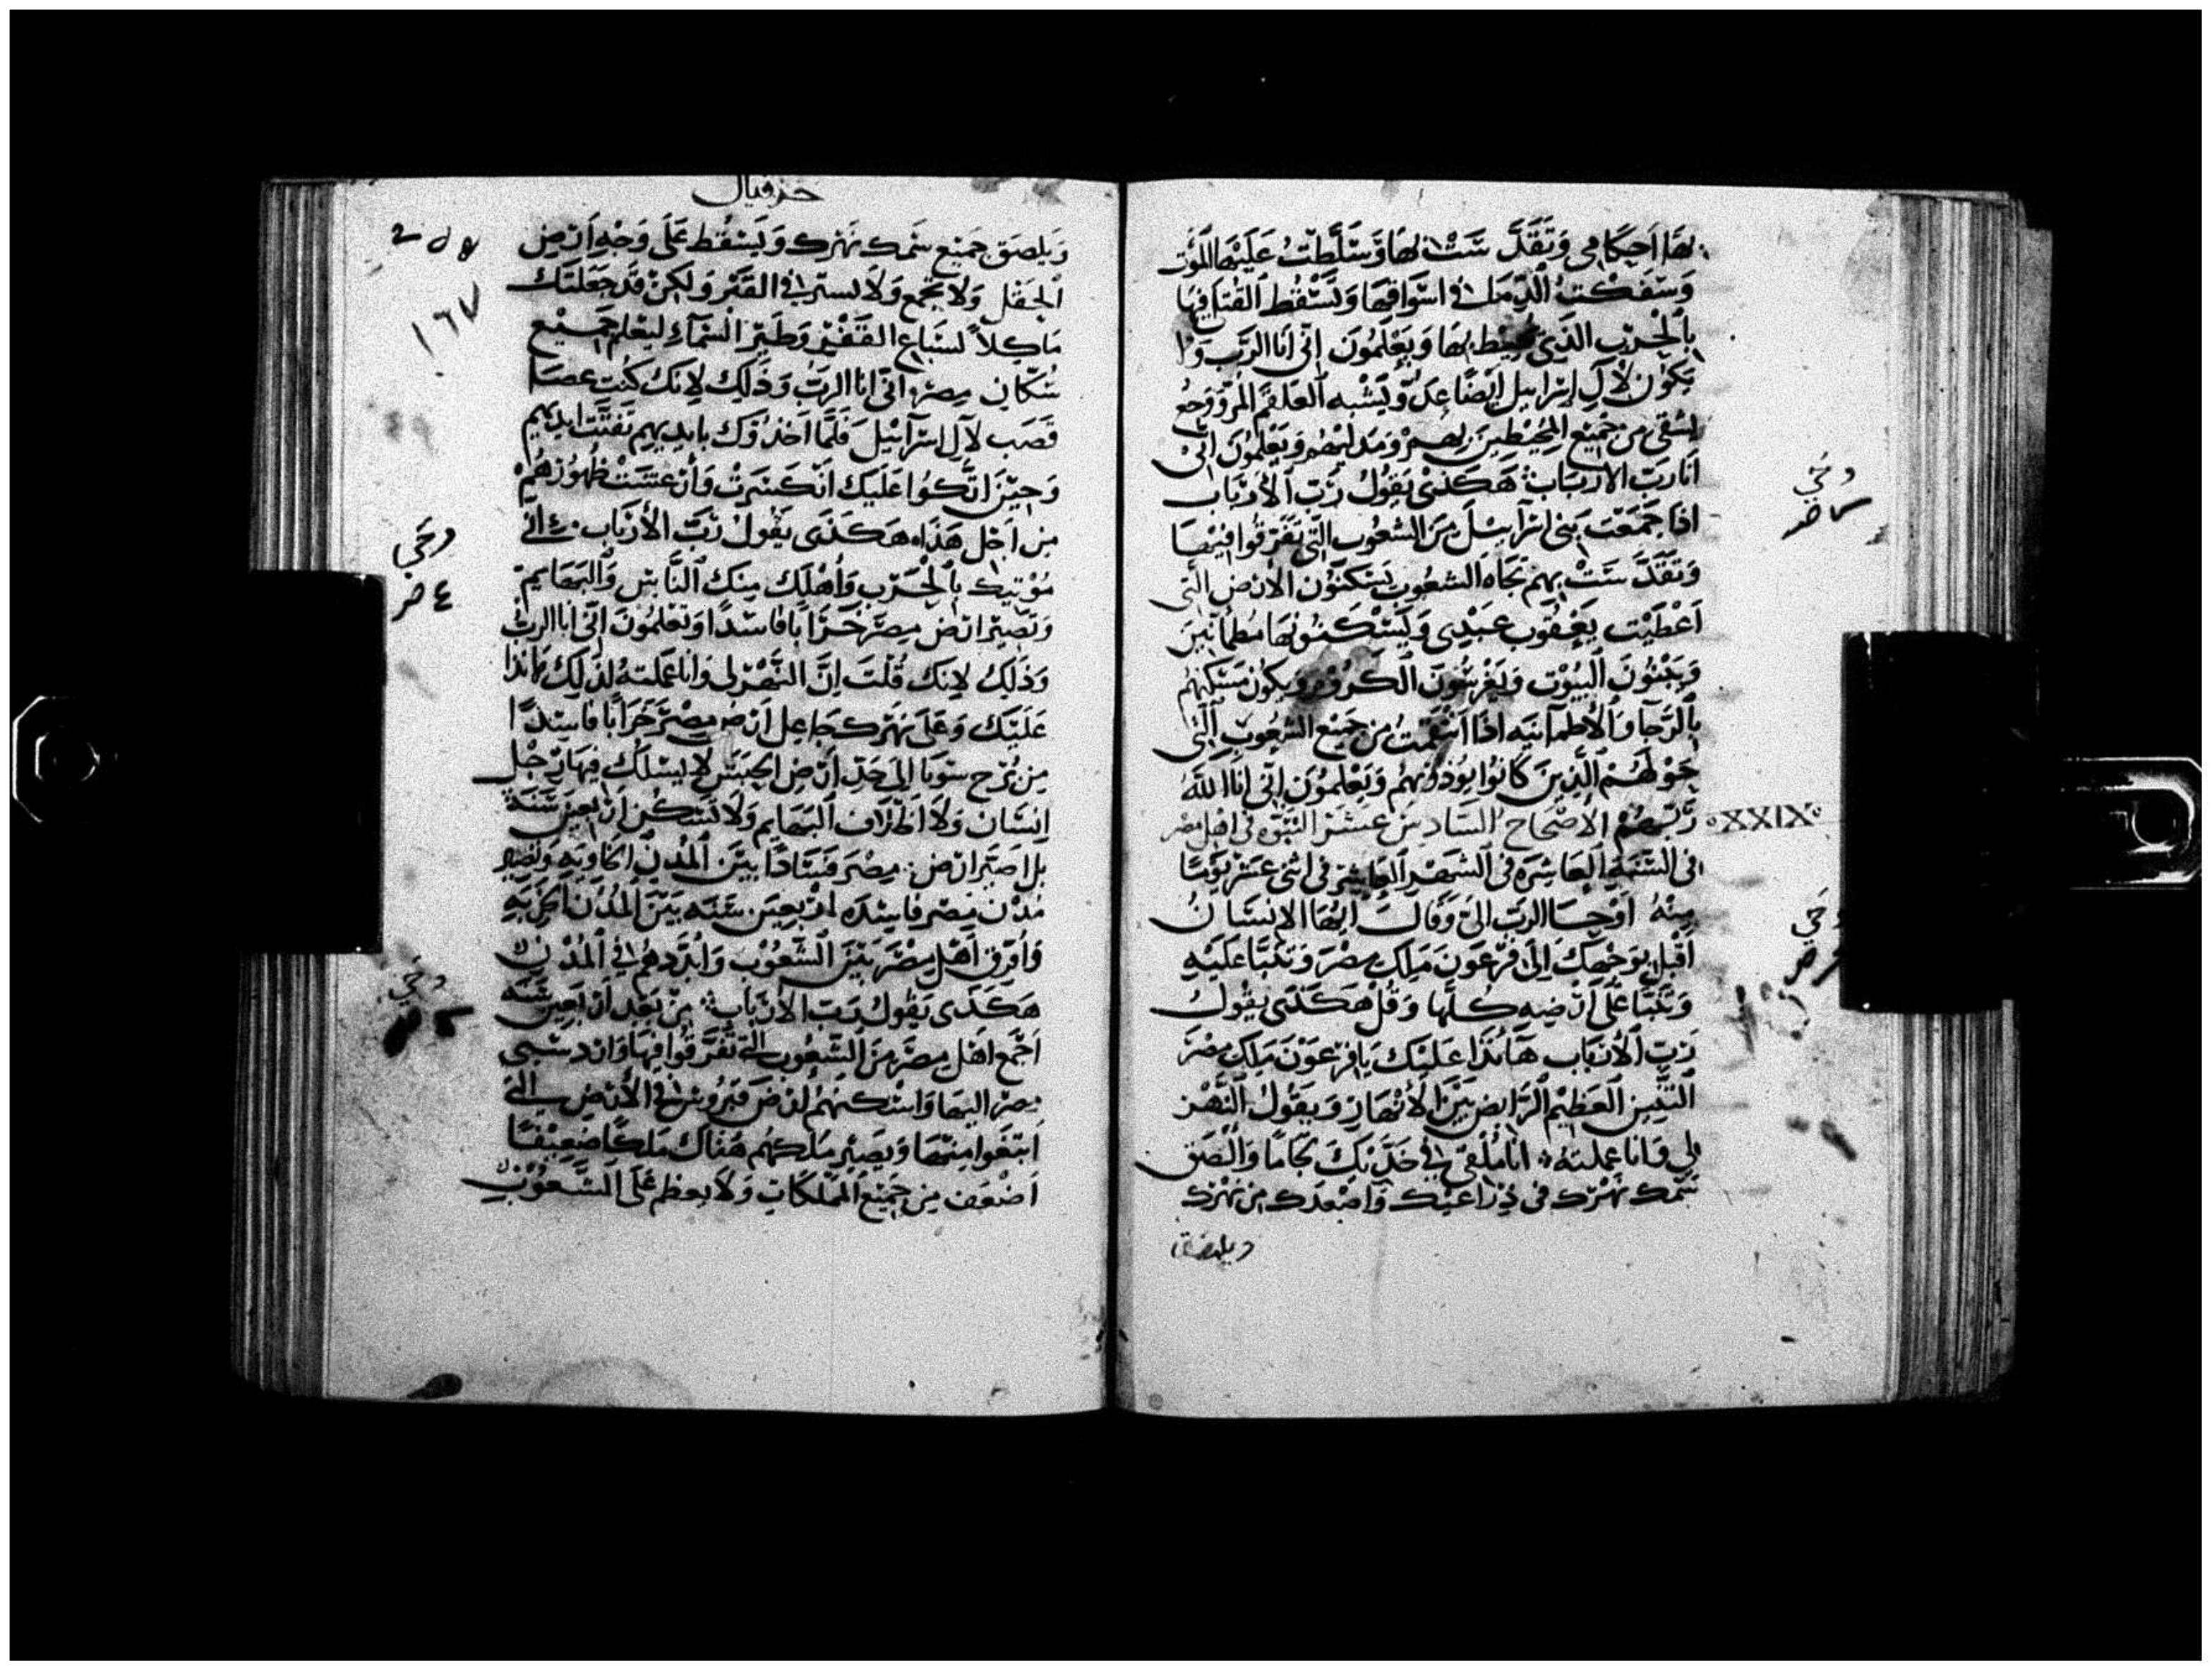 بها احكامى وتقدست بها وسلطت عليها الموت
وسفكت الدما فى اسواقها وتسقط القتلا فيها
بالحرب الذى يحيط بها ويعلمون انى انا الرب ولا
يكون لال اسراييل ايضا عدو يشبه العلقم المر ووجع
من جميع المحيطين بهم ويعلمون انى
انا رب الارباب هكذى يقول رب الارباب
اذا جمعت بنى اسراييل من الشعوب التى تفرقوا فيها
وتقدست بهم تجاه الشعوب يسكنون الارض التى
اعطيت يعقوب عبدى ويسكنونها مطمانين
ويبنون البيوت ويغرسون الكروم ويكون مسكنهم
بالرجا والاطمانيه اذا انتقمت من جميع الشعوب التى
حولهم الذين كانوا يوذونهم ويعلمون انى انا الله
ربهم الاصحاح السادس عشر النبوه فى اهل مصر
XXIX
فى السنة العاشره فى الشهر العاشر فى اثنى عشر يوما
منه اوحا الرب الى وقال ايها الانسان
اقبل بوجهك الى فرعون ملك مصر وتنبا عليه
وتنبا على ارضه كلها وقل هكذى يقول
رب الارباب هانذا عليك يا فرعون ملك مصر
التنين العظيم الرابض بين الانهار ويقول النهر
لى وانا عملته انا ملقى فى خديك لجاما والصق
سمك نهرك فى ذراعيك واصعدك من نهرك
ويلصق
حزقيال
ويلصق جميع سمك نهرك ويسقط على وجه ارض
الحقل ولا يجمع ولا يستر فى القبر ولكن قد جعلتك
ماكلا لسباع القفر وطير السماء ليعلم جميع
سكان مصر انى انا الرب وذلك لانك كنت عصا
قصب لال اسرآئيل فلما اخذوك بايديهم تفتت ايديهم
وحين اتكوا عليك انكسرت وارتعشت ظهورهم
من اجل هذا هكذى يقول رب الارباب انى
موتيك بالحرب واهلك منك الناس والبهايم
وتصير ارض مصر خرابا فاسدا وتعلمون انى انا الرب
وذلك لانك قلت ان النهر لى وانا عملته لذلك هانذا
عليك وعلى نهرك جاعل ارض مصر خرابا فاسدا
من برج سويا الى حد ارض الحبش لا يسلك فيها رجل
انسان ولا اظلاف البهايم ولا تسكن اربعين سنة
بل اصير ارض مصر فسادا بين المدن الخاويه وتصير
مدن مصر فاسده اربعين سنه بين المدن الخربه
وافرق اهل مصر بين الشعوب وابددهم فى المدن
هكذى يقول رب الارباب من بعد اربعين سنه
اجمع اهل مصر من الشعوب التى تفرقوا فيها وارد سبى
مصر اليها واسكنهم ارض فتروس فى الارض التى
ابتغوا منها ويصير ملكهم هناك ملكا ضعيفا
اضعف من جميع المملكات ولا يعظم على الشعوب
١٦٧